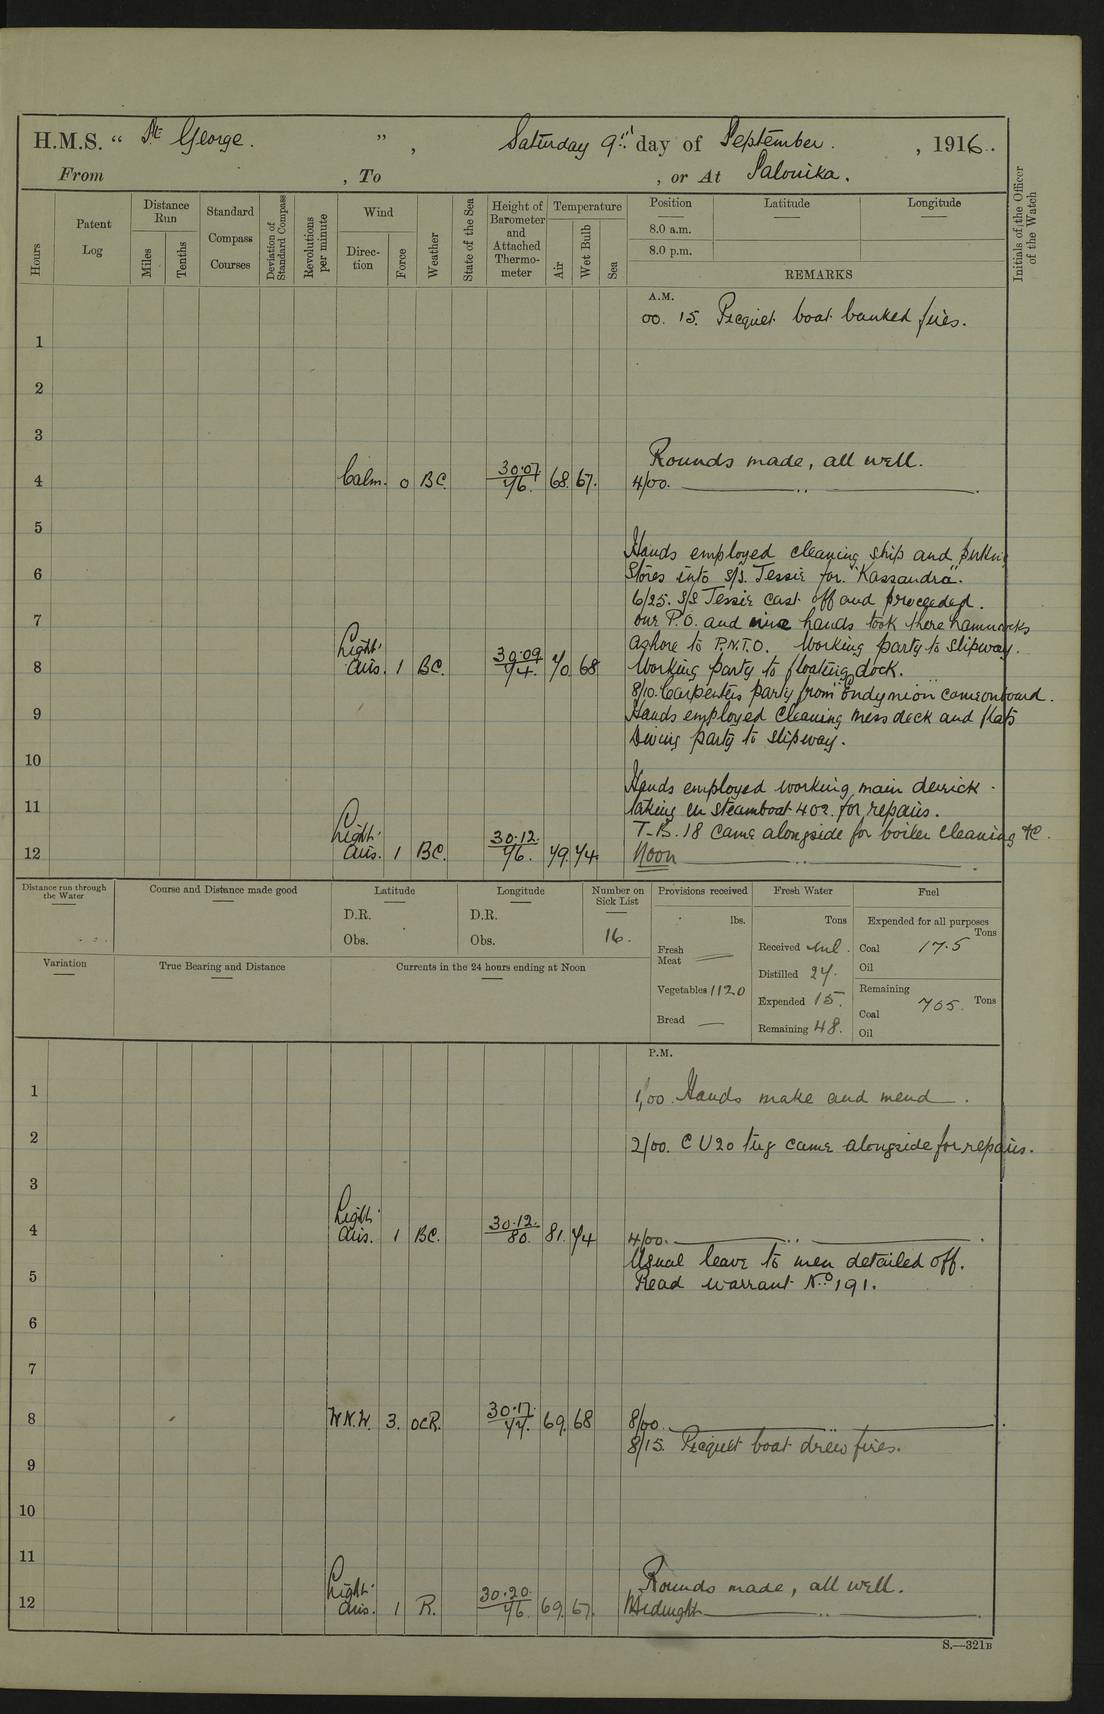 H.M.S. “ St George. ” , Saturday 9th day of September. , 1916.
From , To , or At Salonika.
Hours
Patent Log
Distance Run
Miles
Tenths
Standard Compass Courses
Deviation of Standard Compass
Revolutions per minute
Wind
Direction
Force
Weather
State of the Sea
Height of Barometer and Attached Thermometer
Temperature
Air
Wet Bulb
Sea
Position
8.0 a.m.
8.0 p.m.
Latitude
Longitude
REMARKS
Initials of the Officer of the Watch
A.M.
00. 15. Picquet boat banked fires.
1
2
3
Rounds made, all well.
4 Calm. 0 BC. 30.07/76. 68. 67. 4/00.
5
Hands employed cleaning ship and putting
6 Stores into S/S. Tessie for "Kassandra".
6/25. S/S Tessie cast off and proceeded.
7 one P.O. and nine hands took there hammocks
ashore to P.N.T.O. Working party to slipway.
8 Light airs. 1 BC. 30.09/74. 70. 68 Working party to floating dock.
8/10. Carpenters party from "Endymion" came on board.
9 Hands employed cleaning mess deck and flats
Diving party to slipway.
10
Hands employed working main derrick.
11 taking in steamboat 402. for repairs.
T.B. 18 came alongside for boiler cleaning &c.
12 Light airs. 1 BC. 30.12./76. 79. 74. Noon
Distance run through the Water
Course and Distance made good
Latitude
D.R.
Obs.
Longitude
D.R.
Obs.
Number on Sick List
16.
Provisions received
lbs.
Fresh Meat
Vegetables 1120
Bread —
Fresh Water
Tons
Received nil.
Distilled 27.
Expended 15.
Remaining 48.
Fuel
Expended for all purposes
Tons
Coal 17.5
Oil
Remaining
Coal 705. Tons
Oil
Variation
True Bearing and Distance
Currents in the 24 hours ending at Noon
P.M.
1 1/00. Hands make and mend.
2 2/00. C U 20 tug came alongside for repairs.
3
4 Light airs. 1 BC. 30.12./80. 81. 74 4/00.
Usual leave to men detailed off.
5 Read warrant No 191.
6
7
8 W.N.W. 3. OCR. 30.17./77. 69. 68 8/00.
8/15. Picquet boat drew fires.
9
10
11
Rounds made, all well.
12 Light airs. 1 R. 30.20./76. 69. 67. Midnight
S.—321B